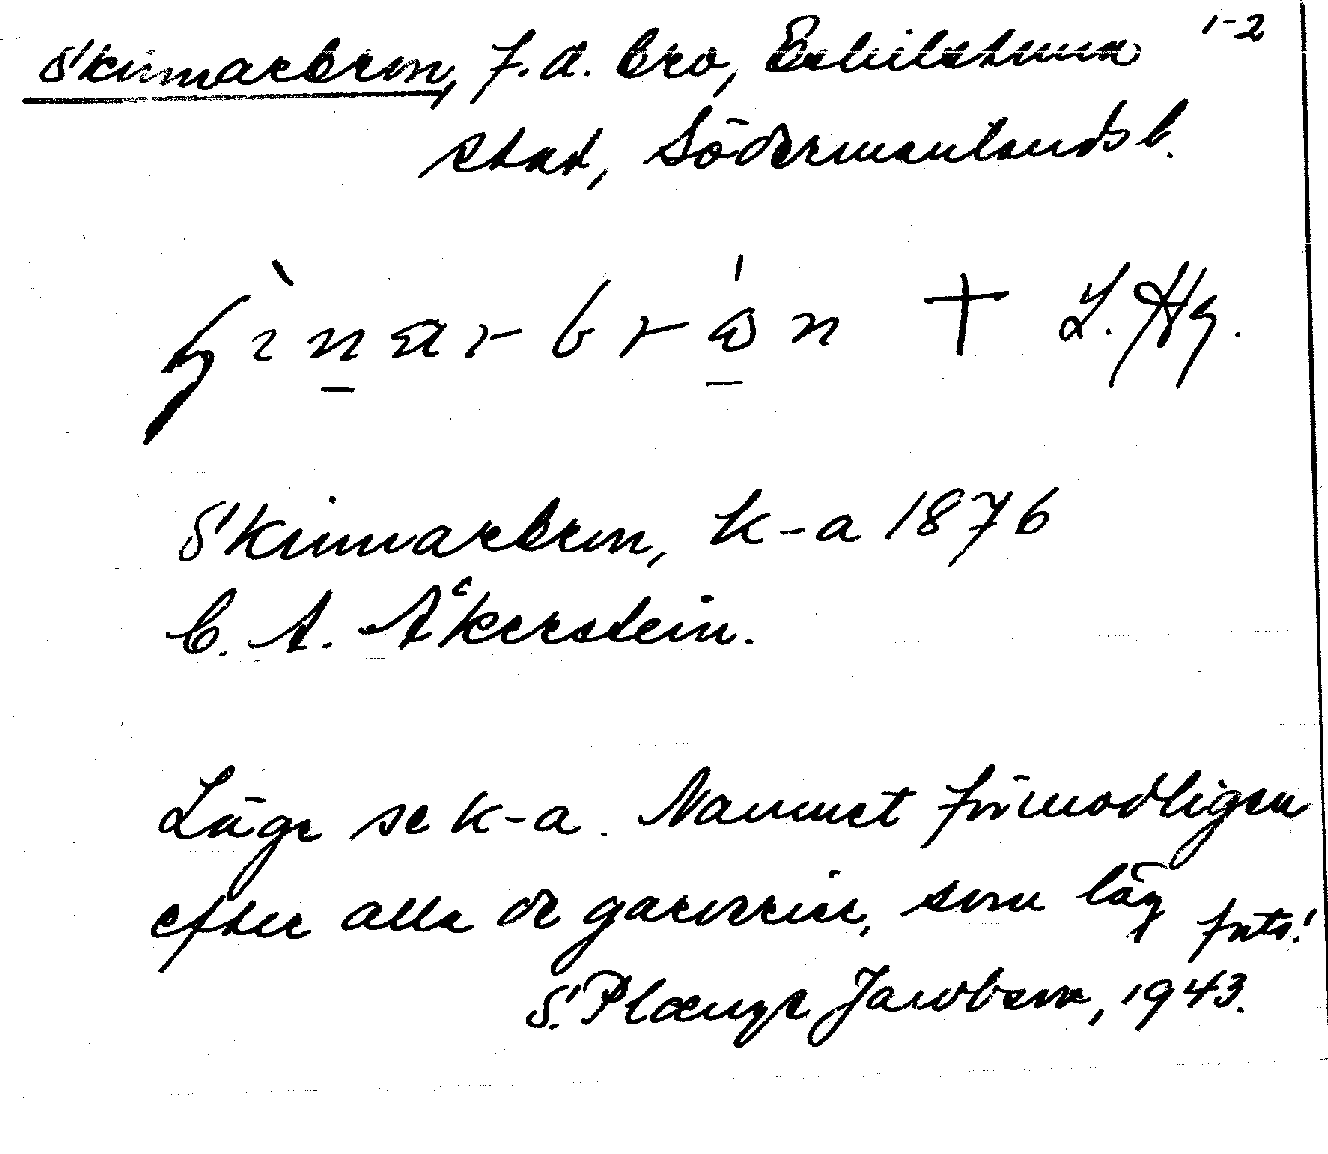 Skinnarbron, f.d. bro, Eskilstuna 1-2
stad, Södermanlands l.
L. Hg.
Skinnarbron, k-a 1876
C. A. Åkerstein.
Läge se k-a. Namnet förmodligen
efter alla de garverier, som låg forts.!
S. Plænge Jacobson, 1943.